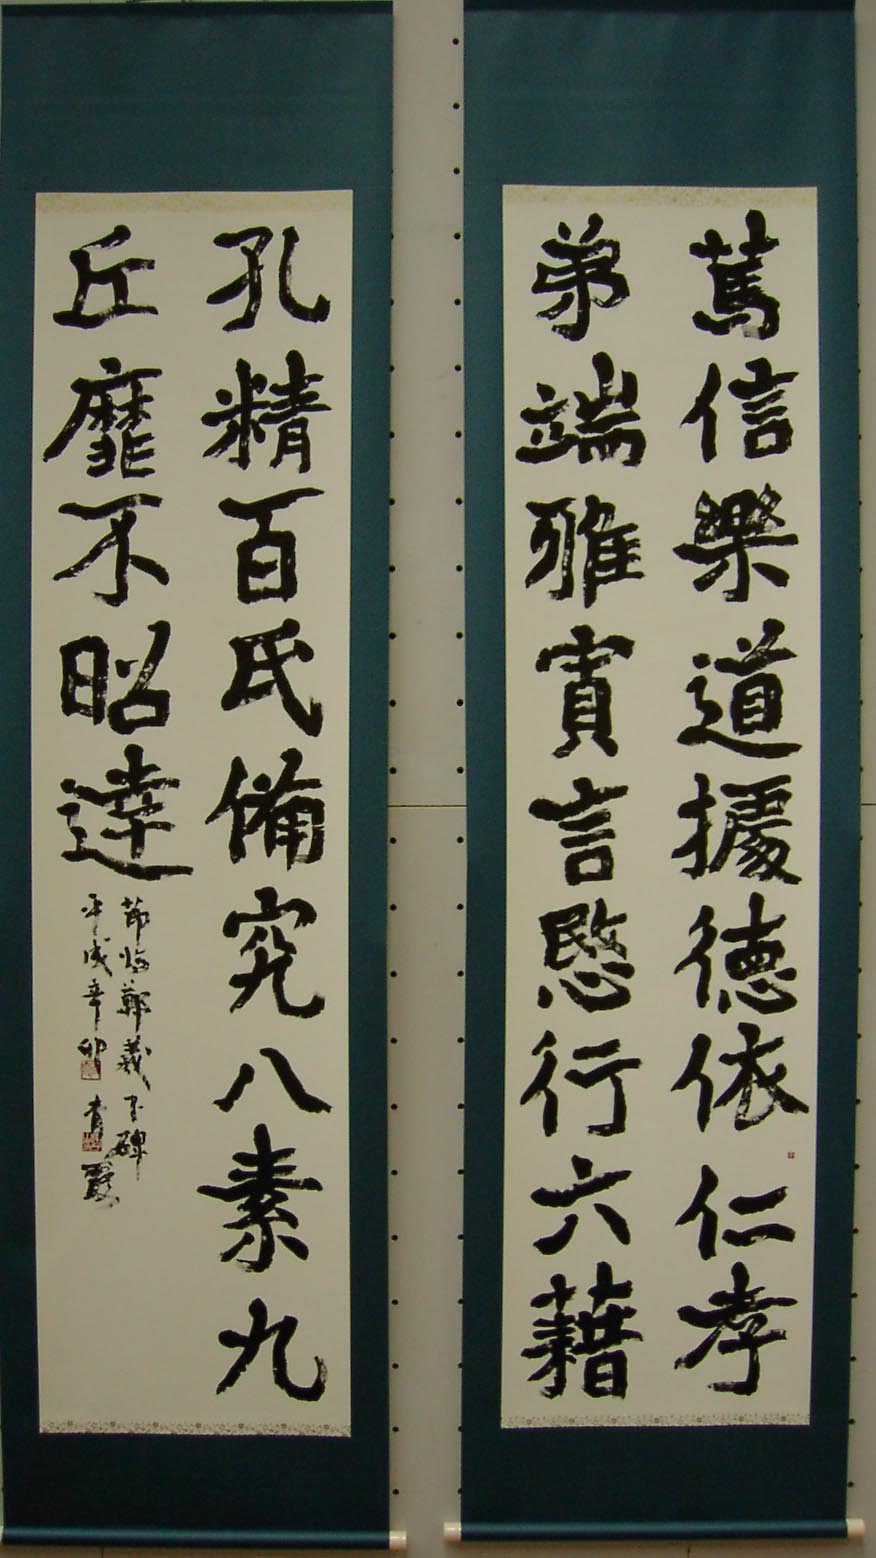 篤信樂道據德依仁孝
弟端雅賓言愍行六藉
孔精百氏備究八素九
丘靡不昭達
節臨鄭羲下碑
平成辛卯 青